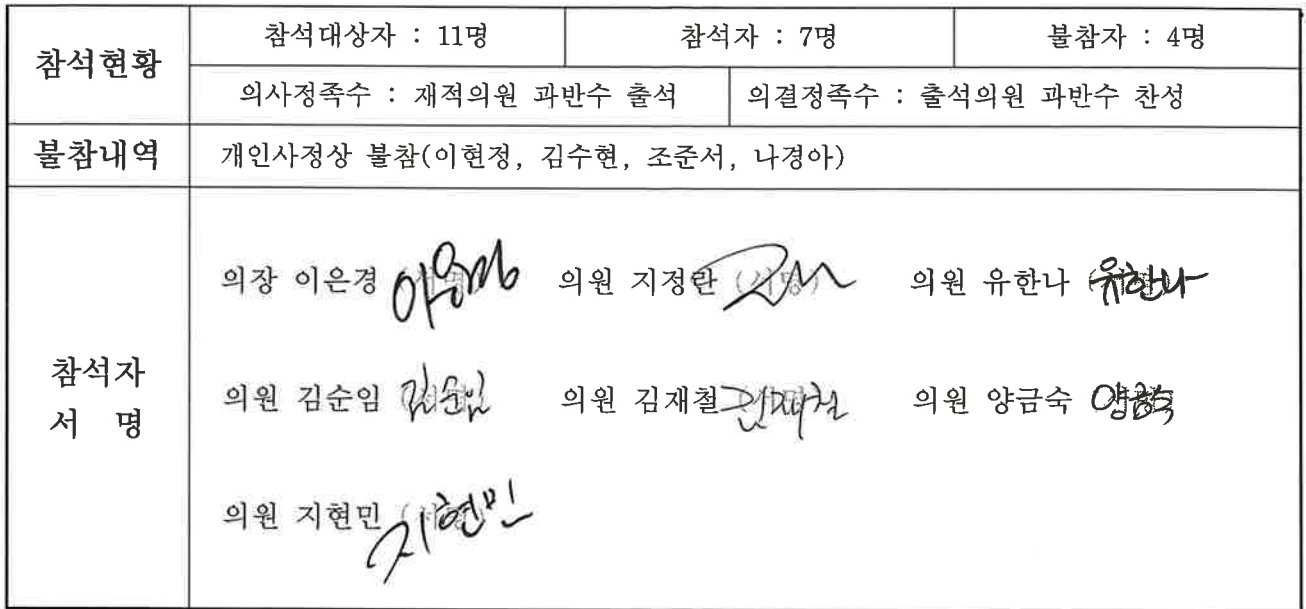 참석현황
참석대상자 : 11명
참석자 : 7명
불참자 : 4명
의사정족수 : 재적의원 과반수 출석
의결정족수 : 출석의원 과반수 찬성
불참내역
개인사정상 불참(이현정, 김수현, 조준서, 나경아)
참석자
서 명
의장 이은경
의원 지정란 (서명)
의원 유한나 유한나
의원 김순임 김순임
의원 김재철 김재철
의원 양금숙 양금숙
의원 지현민 지현민